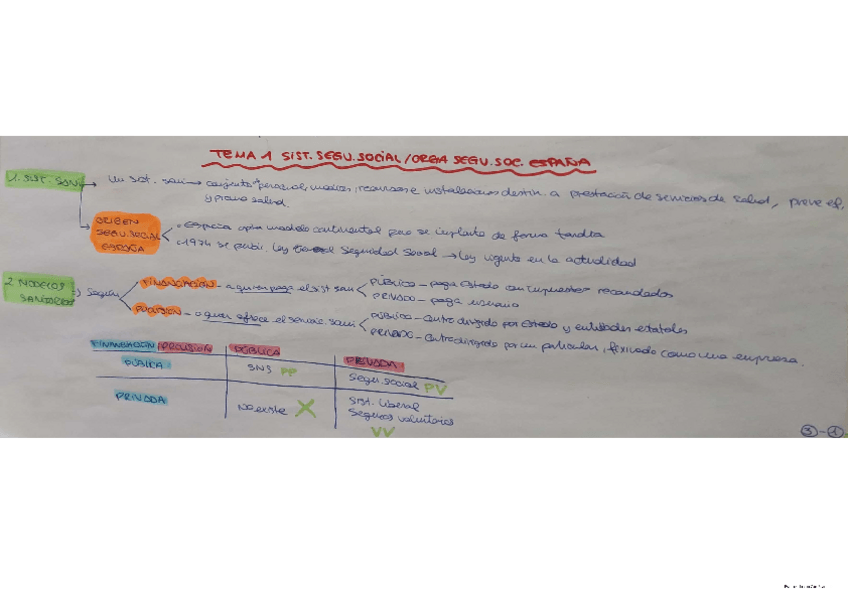 TEMA 1 SIST. SEGU. SOCIAL / ORGA SEGU. SOC. ESPAÑA
1. SIST. SAN → Un sist. sani → conjunto personal, medios, recursos e instalaciones destin. a prestación de servicios de salud, preve ef.
y promo salud.
ORIGEN SEGU. SOCIAL ESPAÑA
• España modelo continental pero se implanta de forma tardía
• 1974 se Ley General Seguridad Social → ley vigente en la actualidad
2 MODELOS SANITARIOS => Según
FINANCIACIÓN - a quien paga el sist sani
PÚBLICO - paga Estado con impuestos recaudados
PRIVADO - paga usuario
PROVISIÓN - a quien ofrece el servicio sani
PÚBLICO - Centro dirigido por Estado y entidades estatales
PRIVADO - Centro dirigido por un particular, como una empresa.
FINANCIACIÓN / PROVISIÓN PÚBLICA PRIVADA
PÚBLICA SNS PP Segu. social PV
PRIVADA No existe X Sist. liberal
Seguros voluntarios
VV
3-1